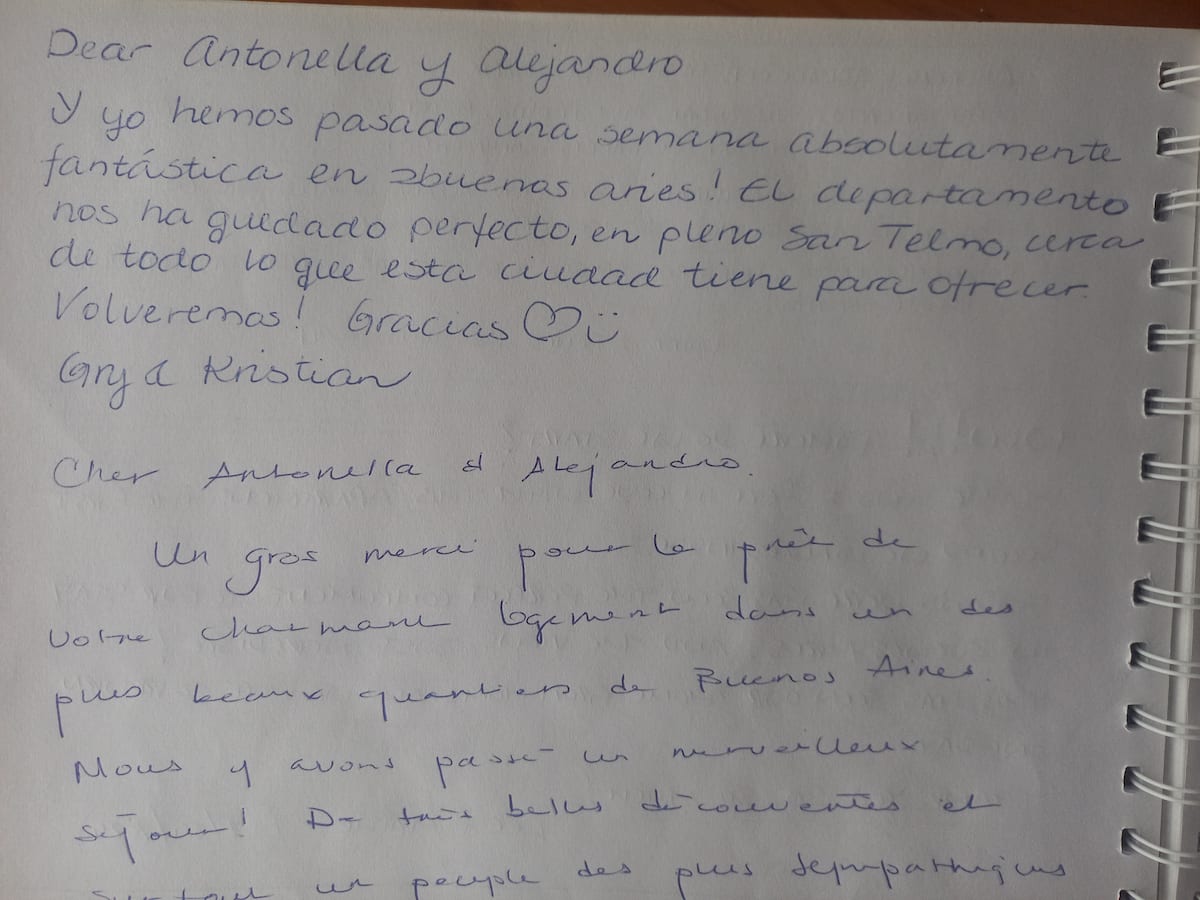 Dear Antonella y Alejandro
Y yo hemos pasado una semana absolutamente
fantástica en buenas aries! El departamento
nos ha quedado perfecto, en pleno San Telmo, cerca
de todo lo que esta ciudad tiene para ofrecer.
Volveremos! Gracias
Gry & Kristian
Cher Antonella et Alejandro.
Un gros merci pour le prêt de
votre charmant logement dans un des
plus beaux quartiers de Buenos Aires.
Nous y avons passé un merveilleux
séjour! De très belles découvertes et
surtout un peuple des plus sympathiques